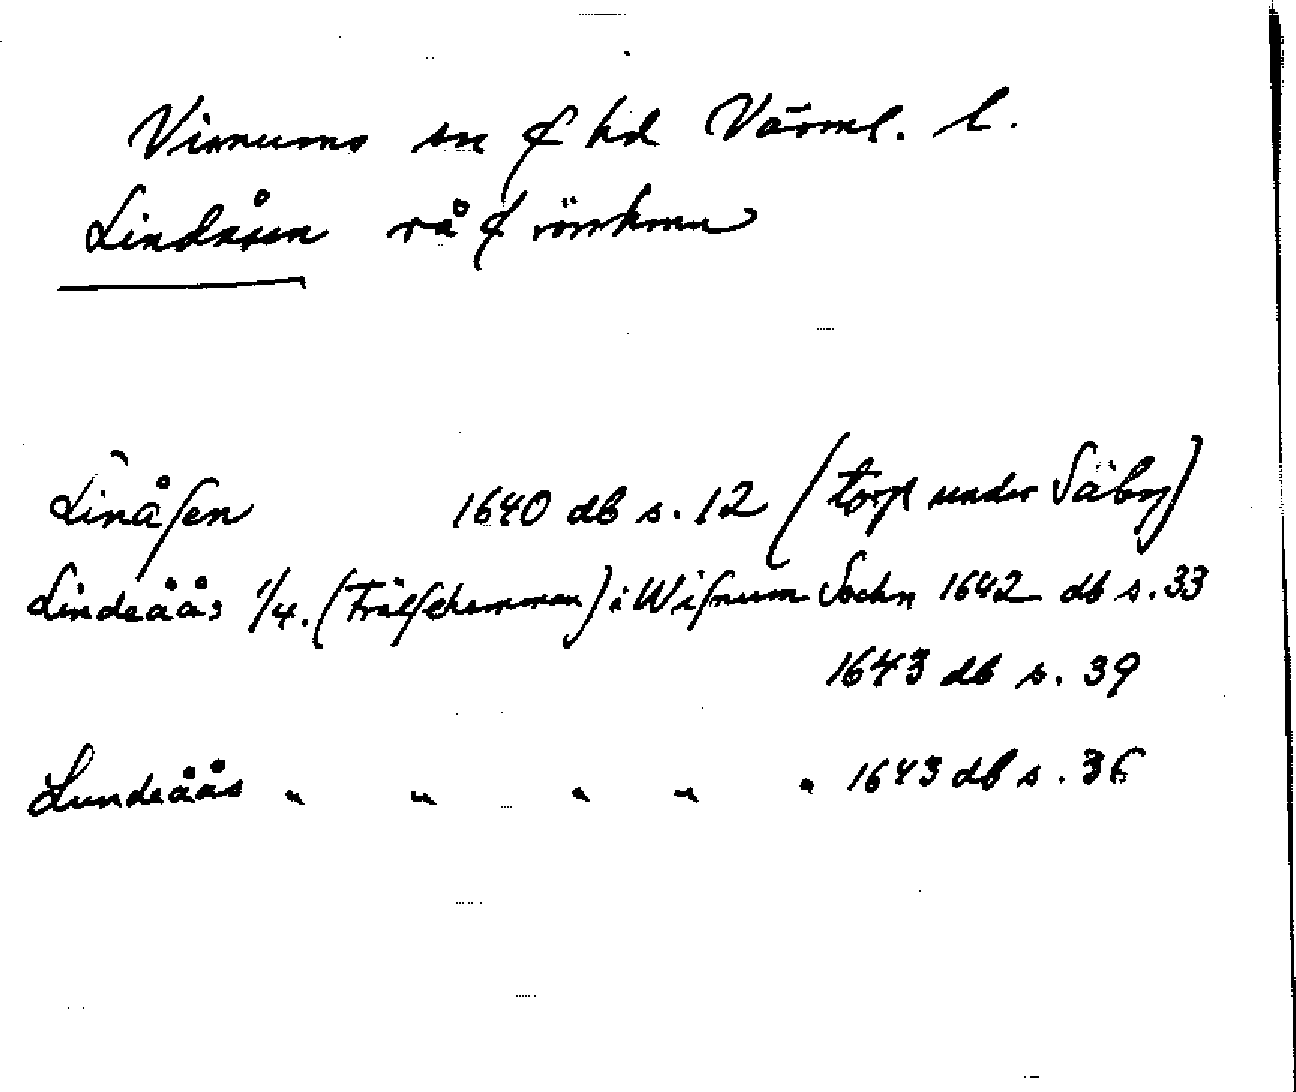 Visnums sn o hd Värml. l.
Lindåsen rå o rörskmn
Linåſen 1640 db s. 12 (torp under Säby)
Lindeåås 1/4. (Frälſehemman) i Wiſnum Sochn 1642 db s. 33
1643 db s. 39
Lundeåås " " " " " 1643 db s. 36